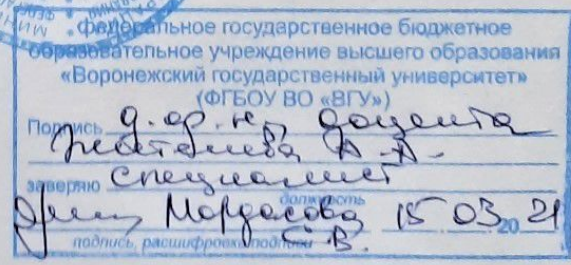 федеральное государственное бюджетное
образовательное учреждение высшего образования
«Воронежский государственный университет»
(ФГБОУ ВО «ВГУ»)
Подпись д.ф.н., доцента
А.А.
заверяю специалист
должность
Мордасова 15 03 20 21
подпись, расшифровка подписи С.В.